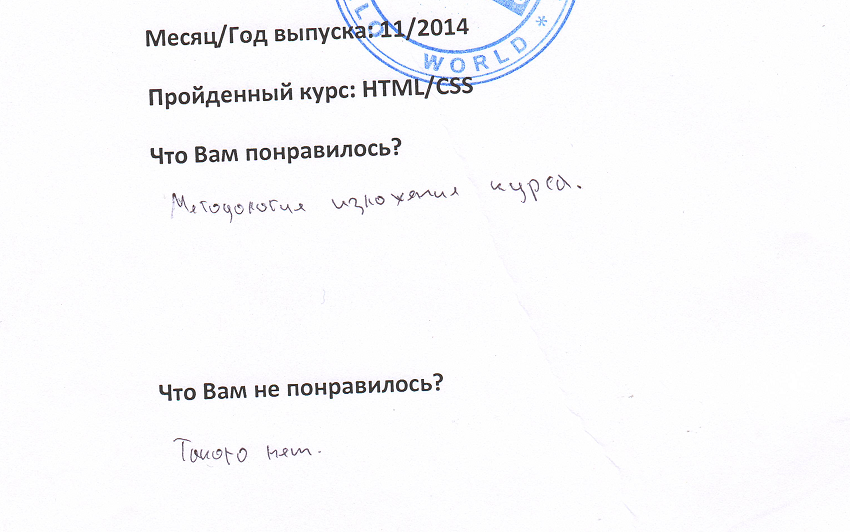 Месяц/Год выпуска: 11/2014
WORLD *
Пройденный курс: HTML/CSS
Что Вам понравилось?
Методология изложения курса.
Что Вам не понравилось?
Такого нет.